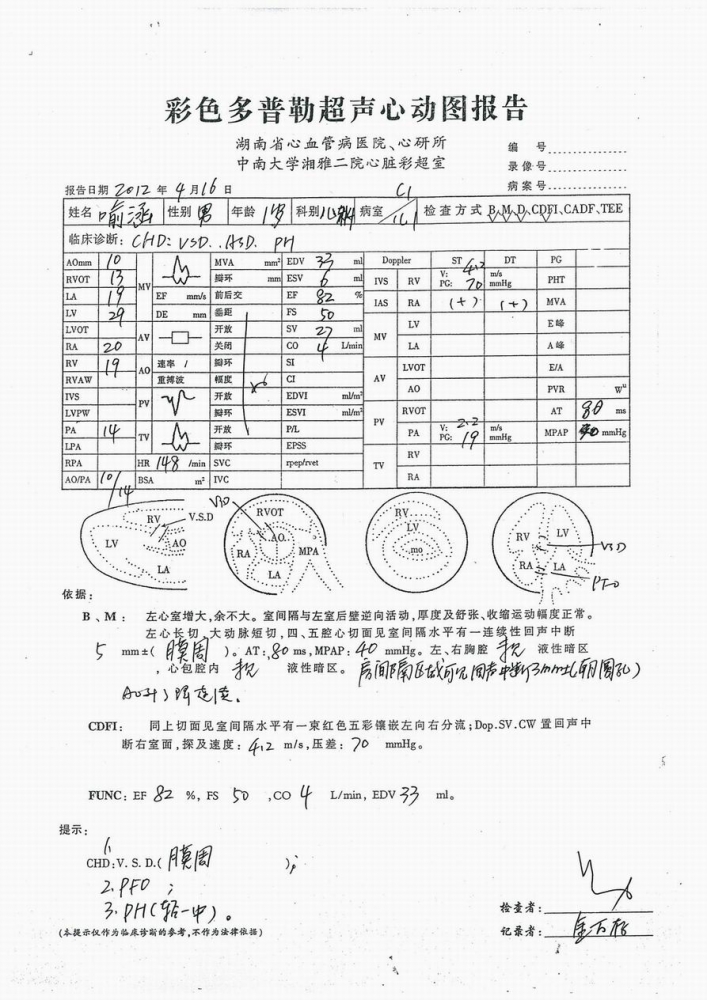 彩色多普勒超声心动图报告
湖南省心血管病医院、心研所
中南大学湘雅二院心脏彩超室
编 号
录像号
病案号
报告日期 2012 年 4 月 16 日
姓名 喻涵 性别 男 年龄 1岁 科别 病室 检查方式 B, M, D, CDFI, CADF, TEE
临床诊断: CHD: VSD. ASD. PH
AOmm 10 MV MVA mm² EDV 33 ml Doppler ST DT PG
RVOT 13 瓣环 mm ESV 6 ml IVS RV V: 4.2 m/s PG: 70 mmHg PHT
LA 19 EF mm/s 前后交 EF 82 % IAS RA (+) (+) MVA
LV 29 DE mm 垂距 FS 50 MV LV E峰
LVOT AV 开放 SV 27 ml LA A峰
RA 20 关闭 CO 4 L/min LVOT E/A
RV 19 AO 速率 瓣环 SI AV AO PVR W
RVAW 重搏波 幅度 CI
IVS PV 开放 EDVI ml/m² PV RVOT AT 80 ms
LVPW 瓣环 ESVI ml/m² PA V: 2.2 m/s PG: 19 mmHg MPAP 40 mmHg
PA 14 TV 开放 P/L
LPA 瓣环 EPSS TV RV
RPA HR 148 /min SVC rpep/rvet RA
AO/PA 10/14 BSA m² IVC
RV V.S.D LV AO LA
VSD RVOT AO RA MPA LA
RV LV mo
RV LV VSD RA LA PFO
依据:
B、M: 左心室增大,余不大。室间隔与左室后壁逆向活动,厚度及舒张、收缩运动幅度正常。
左心长切,大动脉短切,四、五腔心切面见室间隔水平有一连续性回声中断
5 mm±( 膜周 )。AT: 80 ms, MPAP: 40 mmHg。左、右胸腔 液性暗区
,心包腔内 液性暗区。房间隔区域可见回声中断3mm±(卵圆孔)
CDFI: 同上切面见室间隔水平有一束红色五彩镶嵌左向右分流; Dop. SV. CW 置回声中
断右室面,探及速度: 4.2 m/s,压差: 70 mmHg。
FUNC: EF 82 %, FS 50 ,CO 4 L/min, EDV 33 ml。
提示:
1.
CHD: V. S. D. ( 膜周 );
2. PFO ;
3. PH(轻-中)。
检查者:
(本提示仅作为临床诊断的参考,不作为法律依据)
记录者: